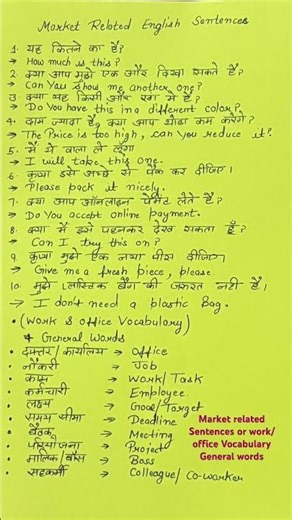 Market Rebted English Sentences
1. यह कितने का है?
→ How much is this?
2. क्या आप मुझे एक और दिखा सकते हैं?
→ Can You Show me another one?
3. क्या यह किसी और रंग में है?
→ Do You have this in a different color?
4. दाम ज्यादा है, क्या आप थोड़ा कम करेंगे?
→ The Price is too high, can you reduce it?
5. मैं ये वाला ले लूँगा
→ I will take this one.
6. कृपया इसे अच्छे से पैक कर दीजिए।
→ Please pack it nicely.
7. क्या आप ऑनलाइन पेमेंट लेते हैं?
→ Do You accept online payment.
8. क्या मैं इसे पहनकर देख सकता हूँ?
→ Can I try this on?
9. कृपया मुझे एक नया पीस दीजिए।
→ Give me a fresh piece, please.
10. मुझे प्लास्टिक बैग की जरूरत नहीं है।
→ I don't need a plastic Bag.
• (Work & office Vocabulary)
* General Words
• दफ्तर/कार्यालय → Office
• नौकरी → Job
• काम → Work/Task
• कर्मचारी → Employee
• लक्ष्य → Goal/Target
• समय सीमा → Deadline
• बैठक → Meeting
• परियोजना → Project
• मालिक/बॉस → Boss
• सहकर्मी → Colleague/Co-worker
Market related
Sentences or work/
office Vocabulary
General words